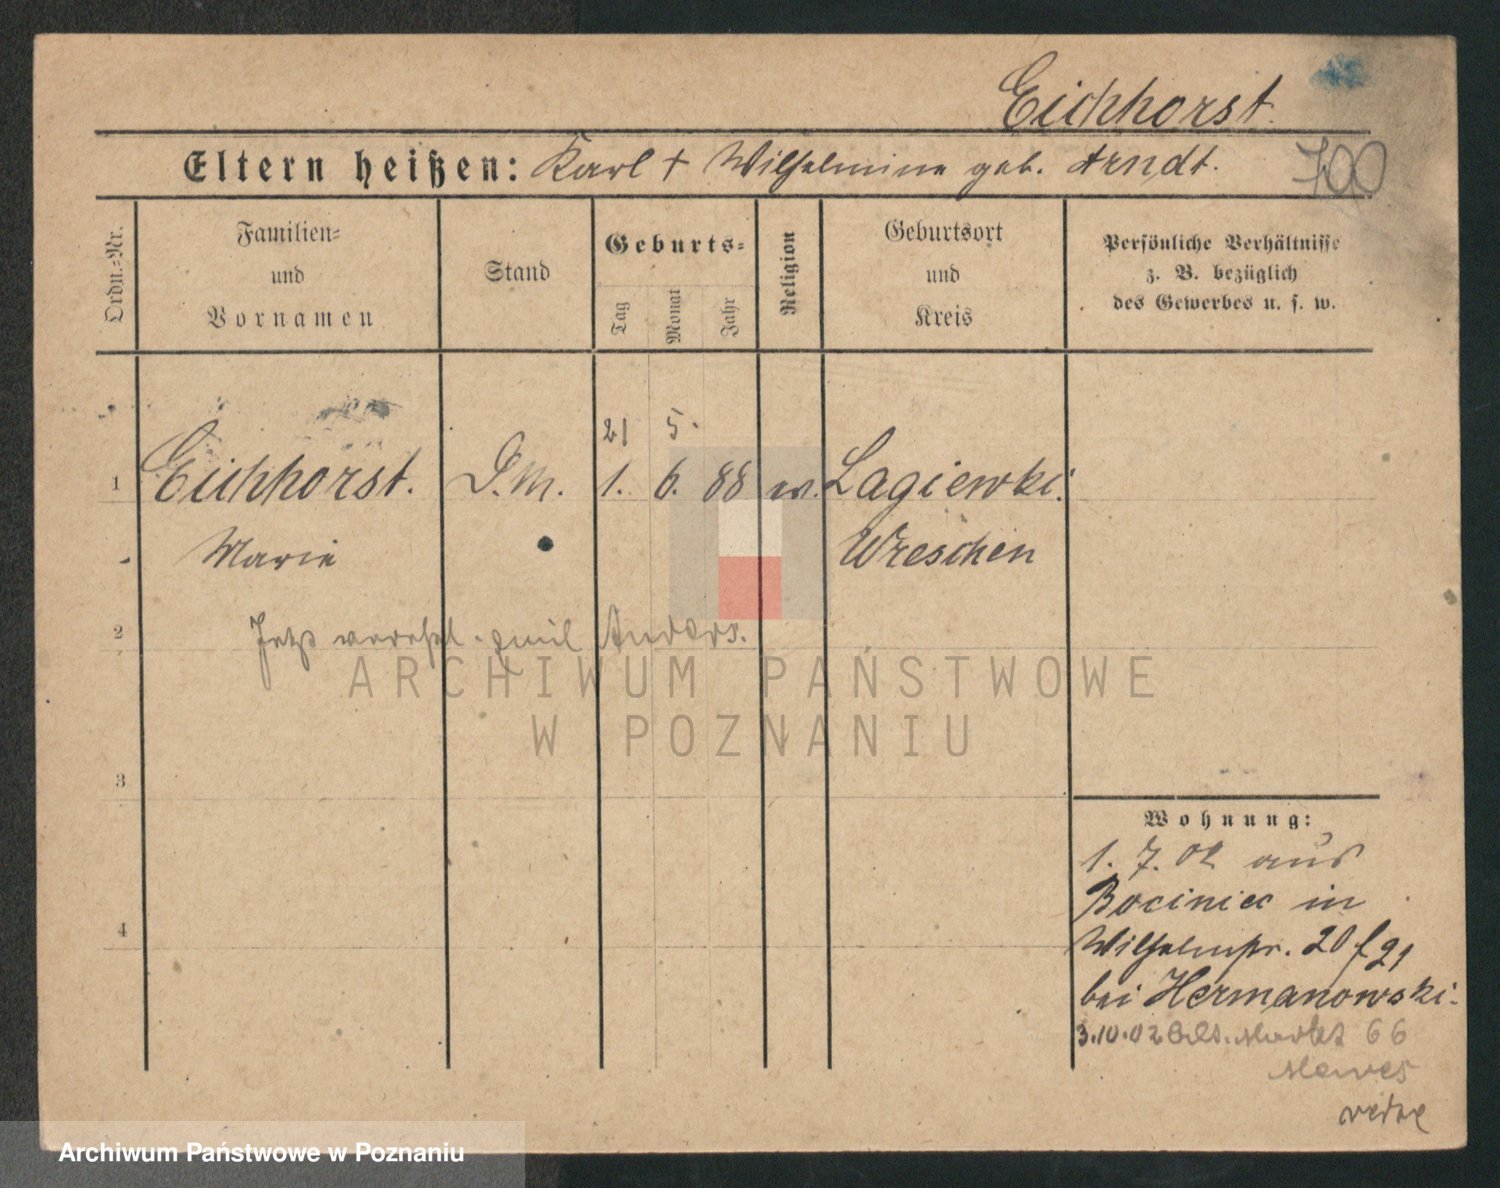 Eichhorst.
Eltern heißen: Karl + Wilhelmine geb. Arndt.
700
Ordn.-Nr.
Familien-
und
Vornamen
Stand
Geburts-
Tag
Monat
Jahr
Religion
Geburtsort
und
Kreis
Persönliche Verhältnisse
z. B. bezüglich
des Gewerbes u. s. w.
21 5.
1 Eichhorst. D.M. 1. 6. 88 ev. Lagiewki.
Marie Wreschen
2
Jetzt Anders.
3
4
Wohnung:
1. 7. 02 aus
Bociniec in
Wilhelmstr. 20
bei Hermanowski.
3.10.02 Markt 66
Mewes
ARCHIWUM PAŃSTWOWE
W POZNANIU
Archiwum Państwowe w Poznaniu